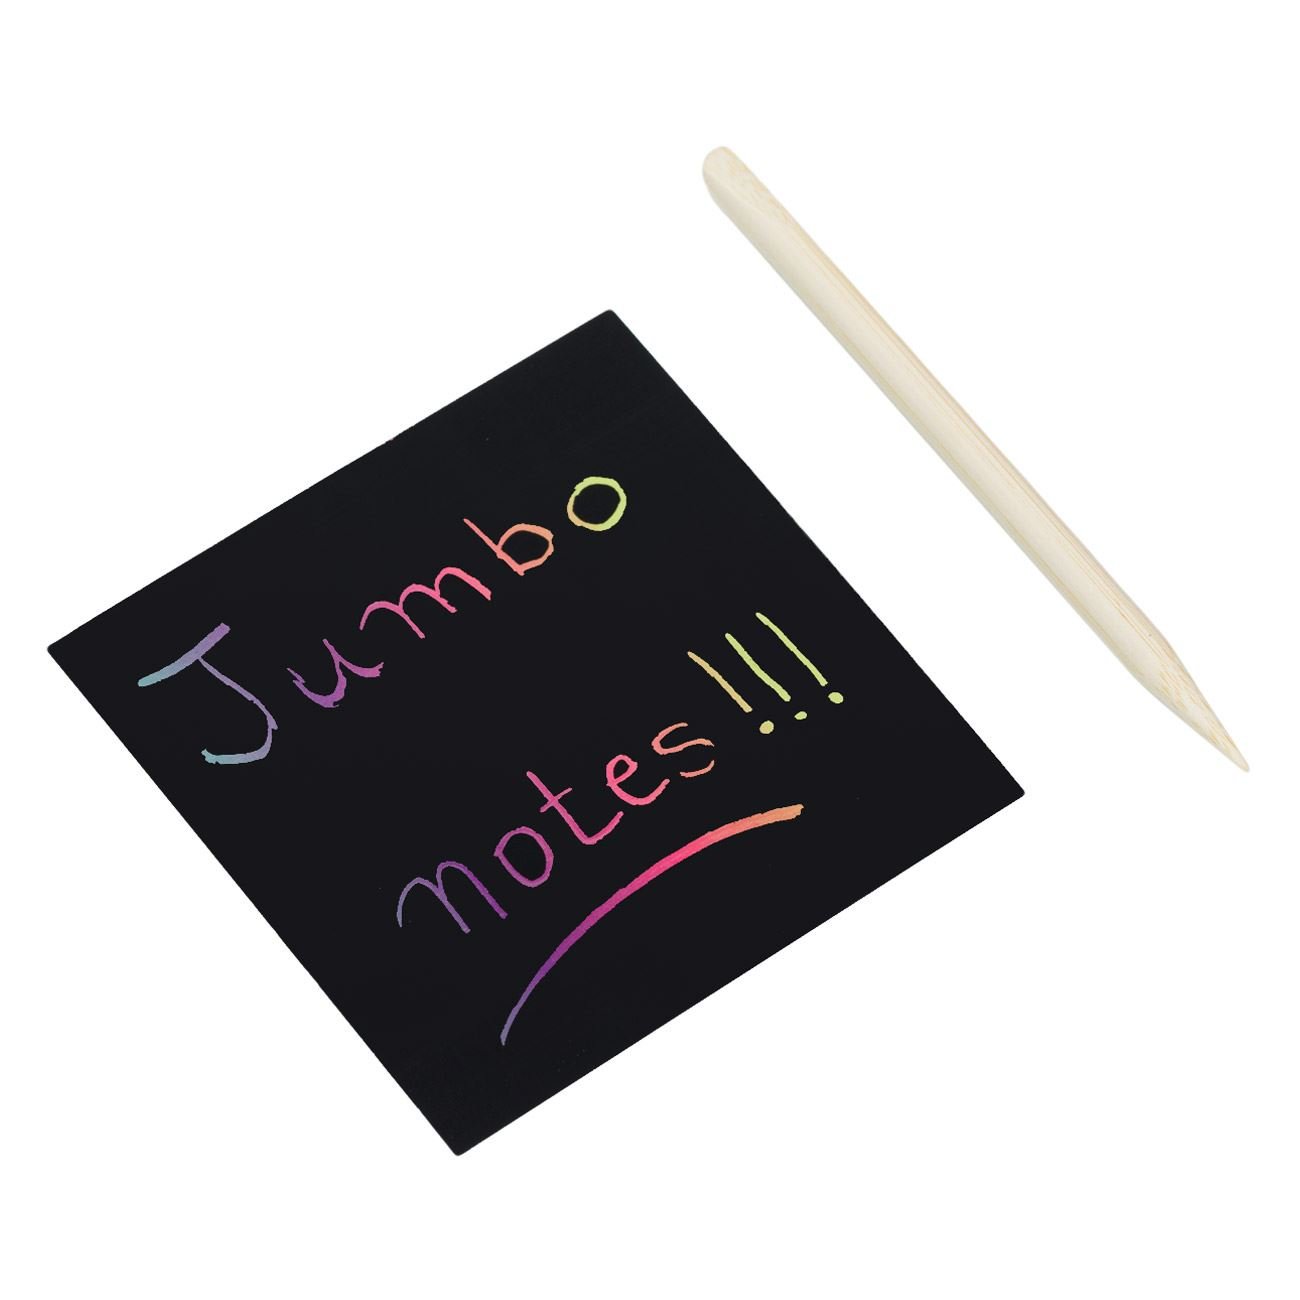 Jumbo
notes!!!